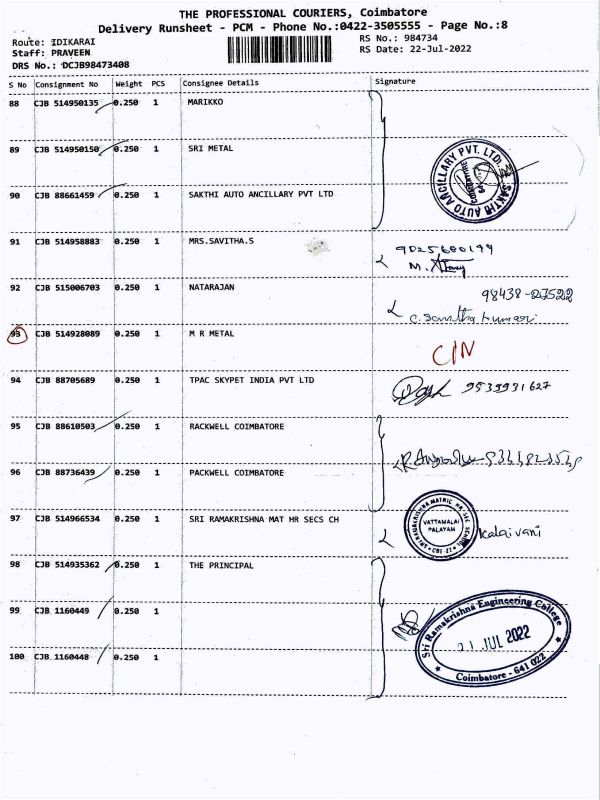 THE PROFESSIONAL COURIERS, Coimbatore
Delivery Runsheet - PCM - Phone No.:0422-3505555 - Page No.:8
Route: IDIKARAI
RS No.: 984734
Staff: PRAVEEN
RS Date: 22-Jul-2022
DRS No.: DCJB98473408
S No Consignment No Weight PCS Consignee Details Signature
88 CJB 514950135 0.250 1 MARIKKO
89 CJB 514950150 0.250 1 SRI METAL
SAKTHI AUTO ANCILLARY PVT. LTD.
90 CJB 88661459 0.250 1 SAKTHI AUTO ANCILLARY PVT LTD
91 CJB 514958883 0.250 1 MRS.SAVITHA.S
9025680199
M.
92 CJB 515006703 0.250 1 NATARAJAN
98438-07522
C. Santha kumari
93 CJB 514928089 0.250 1 M R METAL
C/N
94 CJB 88705689 0.250 1 TPAC SKYPET INDIA PVT LTD
9539931627
95 CJB 88610503 0.250 1 RACKWELL COIMBATORE
96 CJB 88736439 0.250 1 PACKWELL COIMBATORE
97 CJB 514966534 0.250 1 SRI RAMAKRISHNA MAT HR SECS CH
SRI RAMAKRISHNA MATRIC HR. SEC. SCHOOL
VATTAMALAI
PALAYAM
CBE-22
Kalaivani
98 CJB 514935362 0.250 1 THE PRINCIPAL
99 CJB 1160449 0.250 1
Sri Ramakrishna Engineering College
21 JUL 2022
Coimbatore - 641 022
100 CJB 1160448 0.250 1